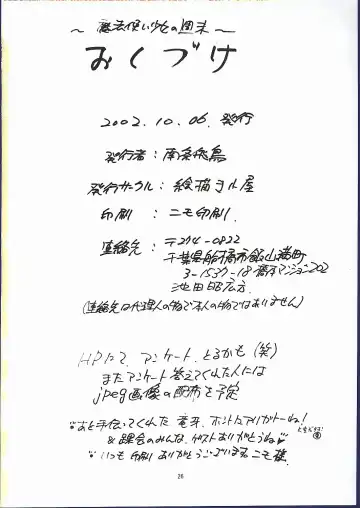 ～ 魔法使い少女の週末 ～
おくづけ
2002.10.06. 発行
発行者：南条飛鳥
発行サークル：絵描キル屋
印刷 ：ニモ印刷
連絡先：〒274-0822
千葉県船橋市飯山満町
3-1537-18-橋本マンション202
池田 方
(連絡先は代理人の物で本人の物ではありません)
HPにて、アンケート、とるかも (笑)
またアンケート答えてくれた人には
jpeg画像の配布を予定
あと手伝ってくれた 竜牙、ホントアリガトーね!
& のみんな、ゲストありがとうね♥
いつも印刷ありがとうございます。ニモ様。
26